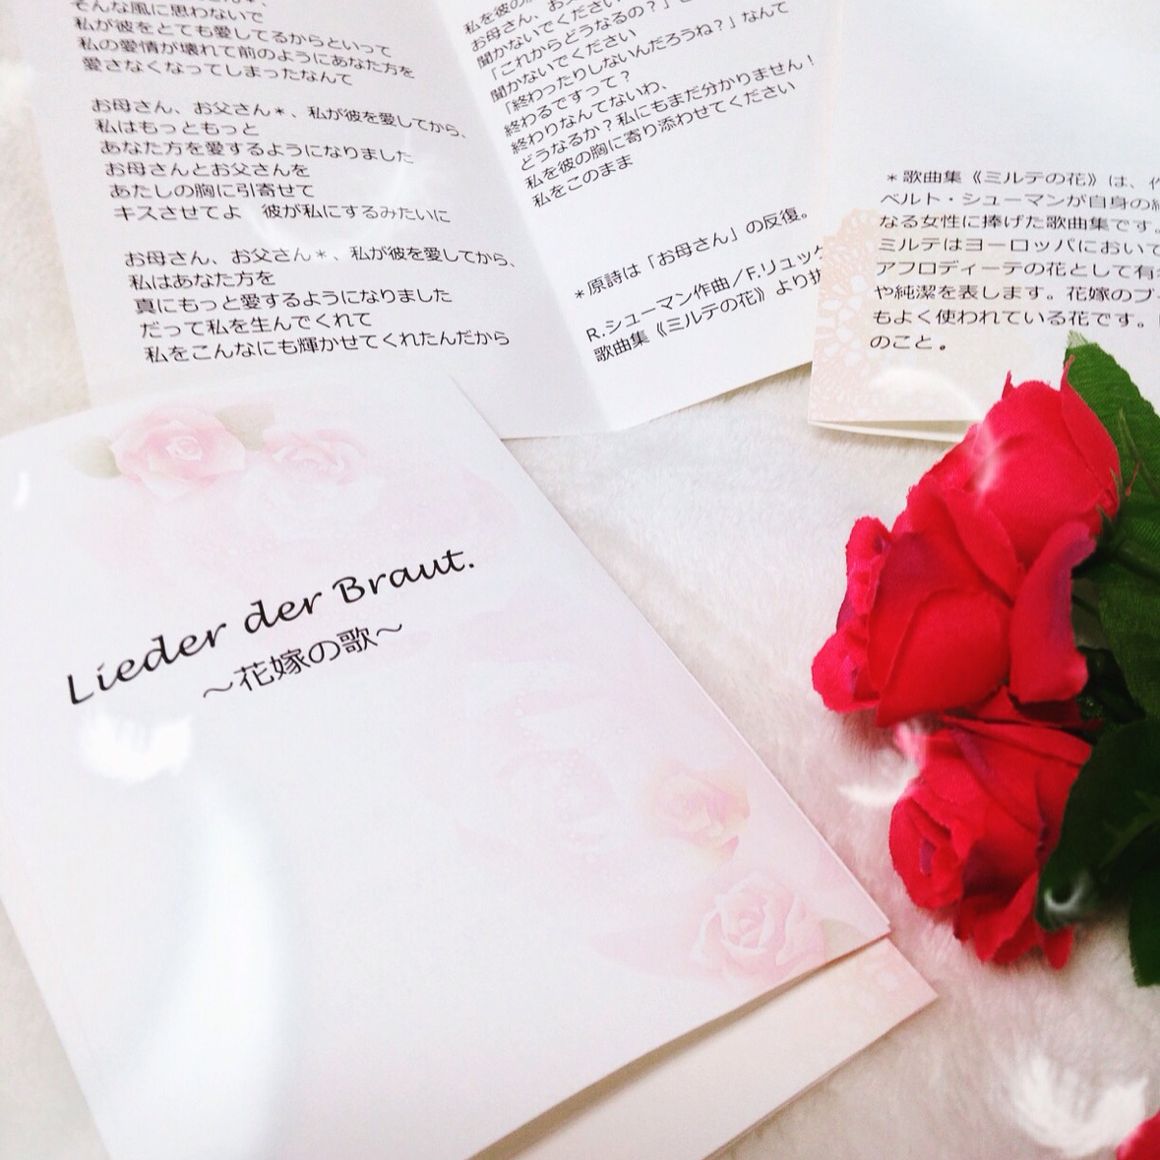 そんな風に思わないで
私が彼をとても愛してるからといって
私の愛情が壊れて前のようにあなた方を
愛さなくなってしまったなんて
お母さん、お父さん＊、私が彼を愛してから、
私はもっともっと
あなた方を愛するようになりました
お母さんとお父さんを
あたしの胸に引寄せて
キスさせてよ 彼が私にするみたいに
お母さん、お父さん＊、私が彼を愛してから、
私はあなた方を
真にもっと愛するようになりました
だって私を生んでくれて
私をこんなにも輝かせてくれたんだから
私を彼の
お母さん、お
聞かないでください
「これからどうなるの？」
聞かないでください
「終わったりしないんだろうね？」なんて
終わるですって？
終わりなんてないわ、
どうなるか？私にもまだ分かりません！
私を彼の胸に寄り添わせてください
私をこのまま
＊原詩は「お母さん」の反復。
R.シューマン作曲／F.リュック
歌曲集《ミルテの花》より
＊歌曲集《ミルテの花》は、
ベルト・シューマンが自身の
なる女性に捧げた歌曲集です。
ミルテはヨーロッパにおいて
アフロディーテの花として有
や純潔を表します。花嫁のブ
もよく使われている花です。
のこと。
Lieder der Braut.
～花嫁の歌～